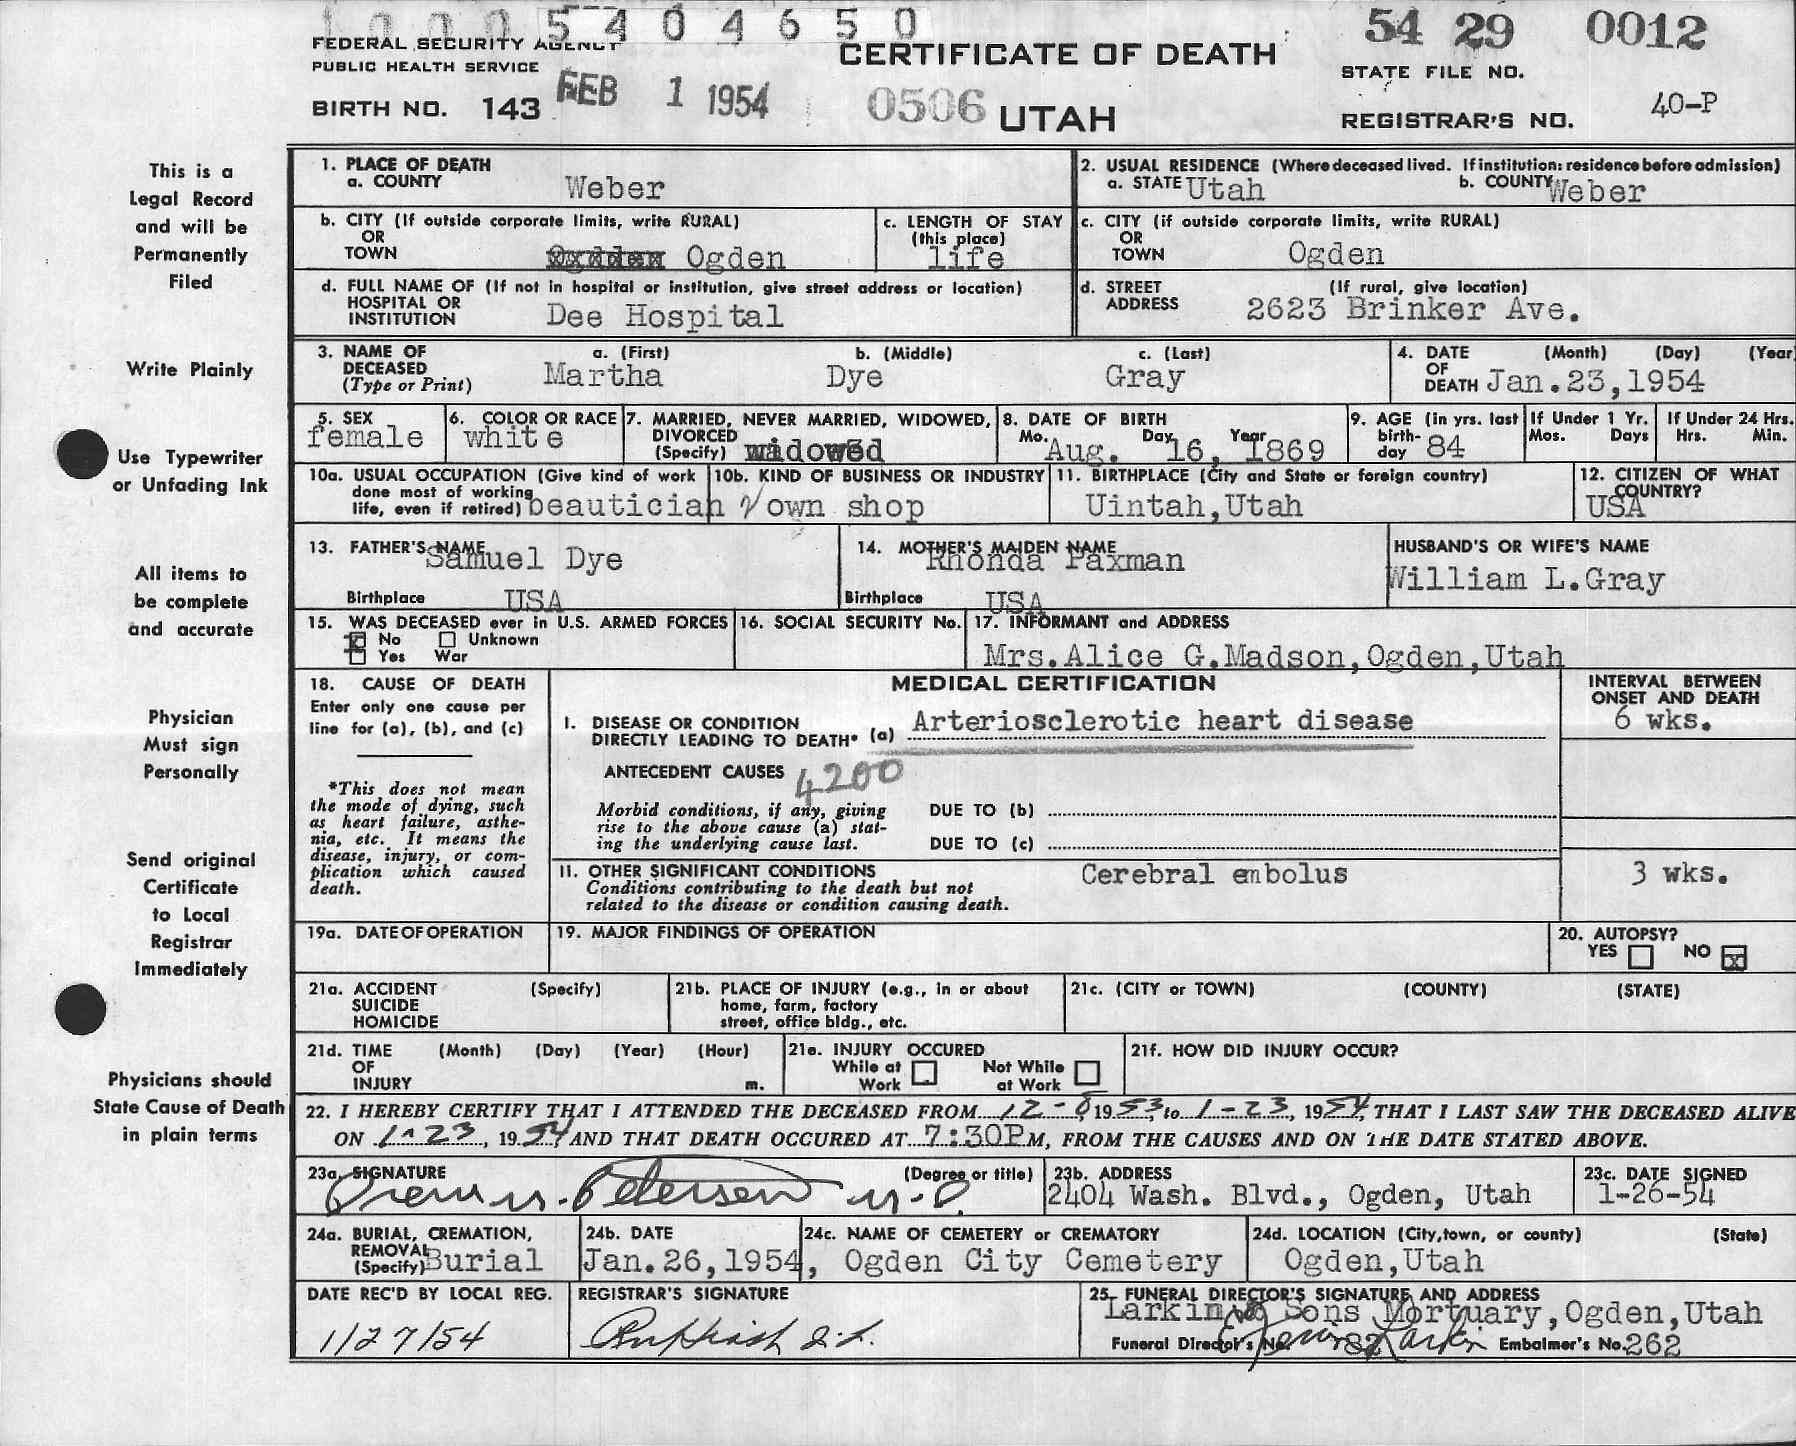 5 4 0 4 6 5 0
54 29 0012
FEDERAL SECURITY AGENCY
PUBLIC HEALTH SERVICE
CERTIFICATE OF DEATH
STATE FILE NO.
BIRTH NO. 143
FEB 1 1954
0506 UTAH
REGISTRAR'S NO. 40-P
This is a
Legal Record
and will be
Permanently
Filed
Write Plainly
Use Typewriter
or Unfading Ink
All items to
be complete
and accurate
Physician
Must sign
Personally
Send original
Certificate
to Local
Registrar
Immediately
Physicians should
State Cause of Death
in plain terms
1. PLACE OF DEATH
a. COUNTY Weber
2. USUAL RESIDENCE (Where deceased lived. If institution: residence before admission)
a. STATE Utah b. COUNTY Weber
b. CITY (If outside corporate limits, write RURAL)
OR
TOWN Ogden
c. LENGTH OF STAY
(this place)
life
c. CITY (if outside corporate limits, write RURAL)
OR
TOWN Ogden
d. FULL NAME OF (If not in hospital or institution, give street address or location)
HOSPITAL OR
INSTITUTION Dee Hospital
d. STREET (If rural, give location)
ADDRESS 2623 Brinker Ave.
3. NAME OF a. (First) b. (Middle) c. (Last)
DECEASED Martha Dye Gray
(Type or Print)
4. DATE (Month) (Day) (Year)
OF
DEATH Jan.23,1954
5. SEX
female
6. COLOR OR RACE
white
7. MARRIED, NEVER MARRIED, WIDOWED,
DIVORCED
(Specify) widowed
8. DATE OF BIRTH
Mo. Day Year
Aug. 16, 1869
9. AGE (in yrs. last
birth-
day 84
If Under 1 Yr.
Mos. Days
If Under 24 Hrs.
Hrs. Min.
10a. USUAL OCCUPATION (Give kind of work
done most of working
life, even if retired) beautician
10b. KIND OF BUSINESS OR INDUSTRY
own shop
11. BIRTHPLACE (City and State or foreign country)
Uintah,Utah
12. CITIZEN OF WHAT
COUNTRY?
USA
13. FATHER'S NAME
Samuel Dye
Birthplace USA
14. MOTHER'S MAIDEN NAME
Rhonda Paxman
Birthplace USA
HUSBAND'S OR WIFE'S NAME
William L.Gray
15. WAS DECEASED ever in U.S. ARMED FORCES
No Unknown
Yes War
16. SOCIAL SECURITY No.
17. INFORMANT and ADDRESS
Mrs.Alice G.Madson,Ogden,Utah
18. CAUSE OF DEATH
Enter only one cause per
line for (a), (b), and (c)
*This does not mean
the mode of dying, such
as heart failure, asthe-
nia, etc. It means the
disease, injury, or com-
plication which caused
death.
MEDICAL CERTIFICATION
INTERVAL BETWEEN
ONSET AND DEATH
I. DISEASE OR CONDITION
DIRECTLY LEADING TO DEATH* (a) Arteriosclerotic heart disease
6 wks.
ANTECEDENT CAUSES 4200
Morbid conditions, if any, giving
rise to the above cause (a) stat-
ing the underlying cause last.
DUE TO (b)
DUE TO (c)
II. OTHER SIGNIFICANT CONDITIONS
Conditions contributing to the death but not
related to the disease or condition causing death.
Cerebral embolus
3 wks.
19a. DATE OF OPERATION
19. MAJOR FINDINGS OF OPERATION
20. AUTOPSY?
YES NO X
21a. ACCIDENT (Specify)
SUICIDE
HOMICIDE
21b. PLACE OF INJURY (e.g., in or about
home, farm, factory
street, office bldg., etc.
21c. (CITY or TOWN) (COUNTY) (STATE)
21d. TIME (Month) (Day) (Year) (Hour)
OF
INJURY m.
21e. INJURY OCCURED
While at Work
Not While at Work
21f. HOW DID INJURY OCCUR?
22. I HEREBY CERTIFY THAT I ATTENDED THE DECEASED FROM 12-8 1953, to 1-23, 1954, THAT I LAST SAW THE DECEASED ALIVE
ON 1-23, 1954 AND THAT DEATH OCCURED AT 7:30P M, FROM THE CAUSES AND ON THE DATE STATED ABOVE.
23a. SIGNATURE (Degree or title)
Petersen M.D.
23b. ADDRESS
2404 Wash. Blvd., Ogden, Utah
23c. DATE SIGNED
1-26-54
24a. BURIAL, CREMATION,
REMOVAL
(Specify) Burial
24b. DATE
Jan.26,1954,
24c. NAME OF CEMETERY or CREMATORY
Ogden City Cemetery
24d. LOCATION (City,town, or county) (State)
Ogden,Utah
DATE REC'D BY LOCAL REG.
1/27/54
REGISTRAR'S SIGNATURE
25. FUNERAL DIRECTOR'S SIGNATURE AND ADDRESS
Larkin & Sons Mortuary,Ogden,Utah
Funeral Director's No. 782 Larkin Embalmer's No. 262